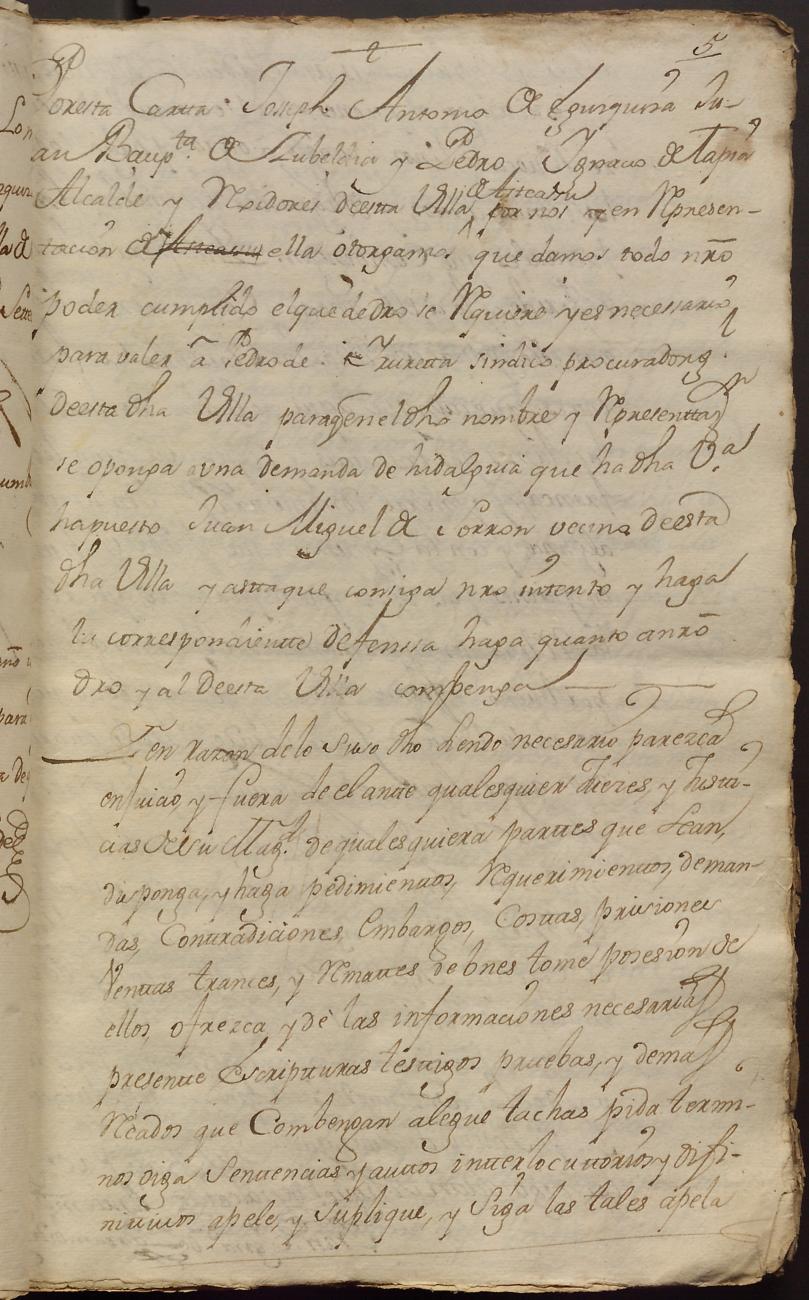 5
Poresta Carta Joseph Antonio de Eguiguria Ju-
an Baupta. de Zubeldia y Pedro Ignacio de Tapia
Alcalde y Rexidores deesta Villa de Asteasu por nos y en Represen-
tacion de Asteasu ella otorgamos que damos todo nro
poder cumplido elque de dro se Requiere y es necessario
para valer a Pedro de Yrureta sindico procurador g
Deesta dha Villa para q en el dho nombre y Represent
se oponga a una demanda de hidalguia que ha dha Va
ha puesto Juan Miguel de Porron vecino deesta
dha Villa y asta que consiga nro intento y haga
la correspondiente defenssa haga quanto a nro
dro y al Deesta Villa combenga
Y en razon de lo suso dho siendo necesario parezca
en juicio, y fuera de el ante qualesquier Juezes, y Justi-
cias de su Magd. de qualesquiera partes que sean,
y haga pedimientos, Requerimientos, deman-
das, Contradiciones, Embargos, Costas, prisiones
Ventas trances, y Remates de bnes tome posesion de
ellos, ofrezca, y dè las informaciones necesarias
presente Escripturas testigos pruebas, y demas
Recados que Combengan alegue tachas pida termi-
nos oiga Sentencias y autos interlocutorios y difi-
nitivos apele, y suplique, y Siga las tales apela